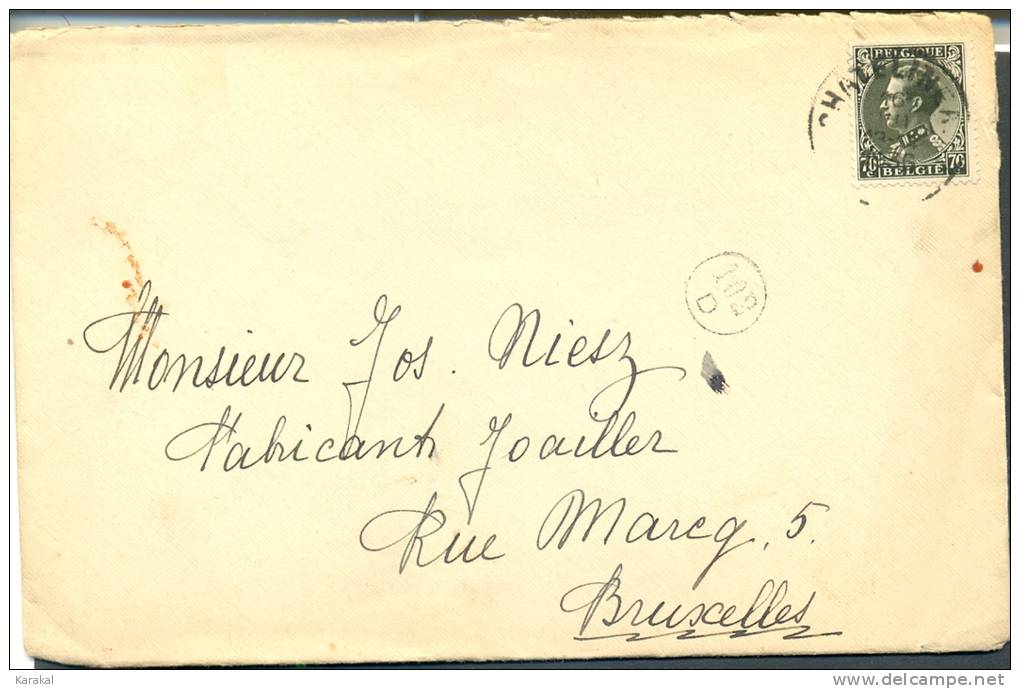 BELGIQUE
70 c BELGIE 70 c
102
D
Monsieur Jos. Niesz
Fabricant Joailler
Rue Marcq, 5.
Bruxelles
Karakal
delcampe.net